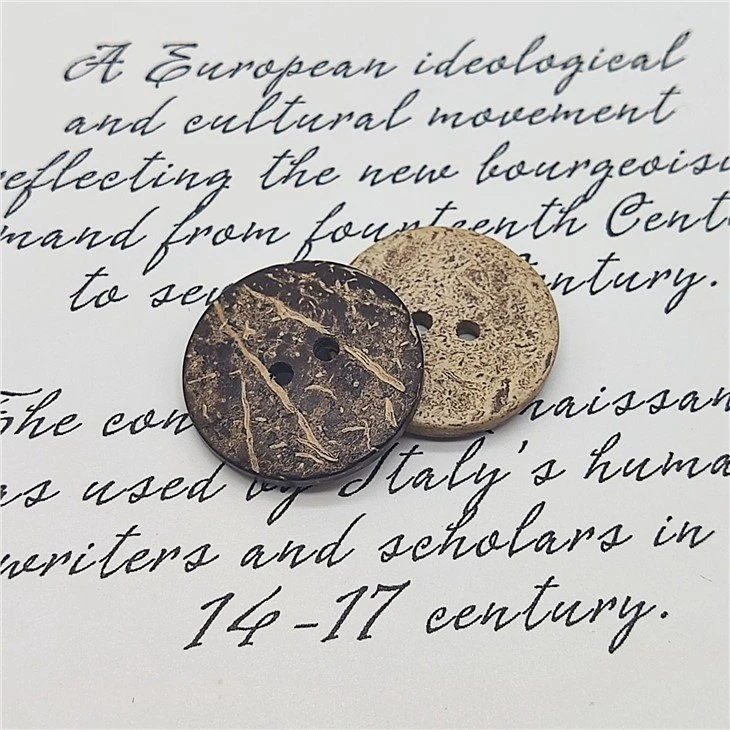 A European ideological
and cultural movement
reflecting the new bourgeois
mand from fourteenth Cent
to se ntury.
The con naissan
as used by Italy's huma
writers and scholars in
14-17 century.